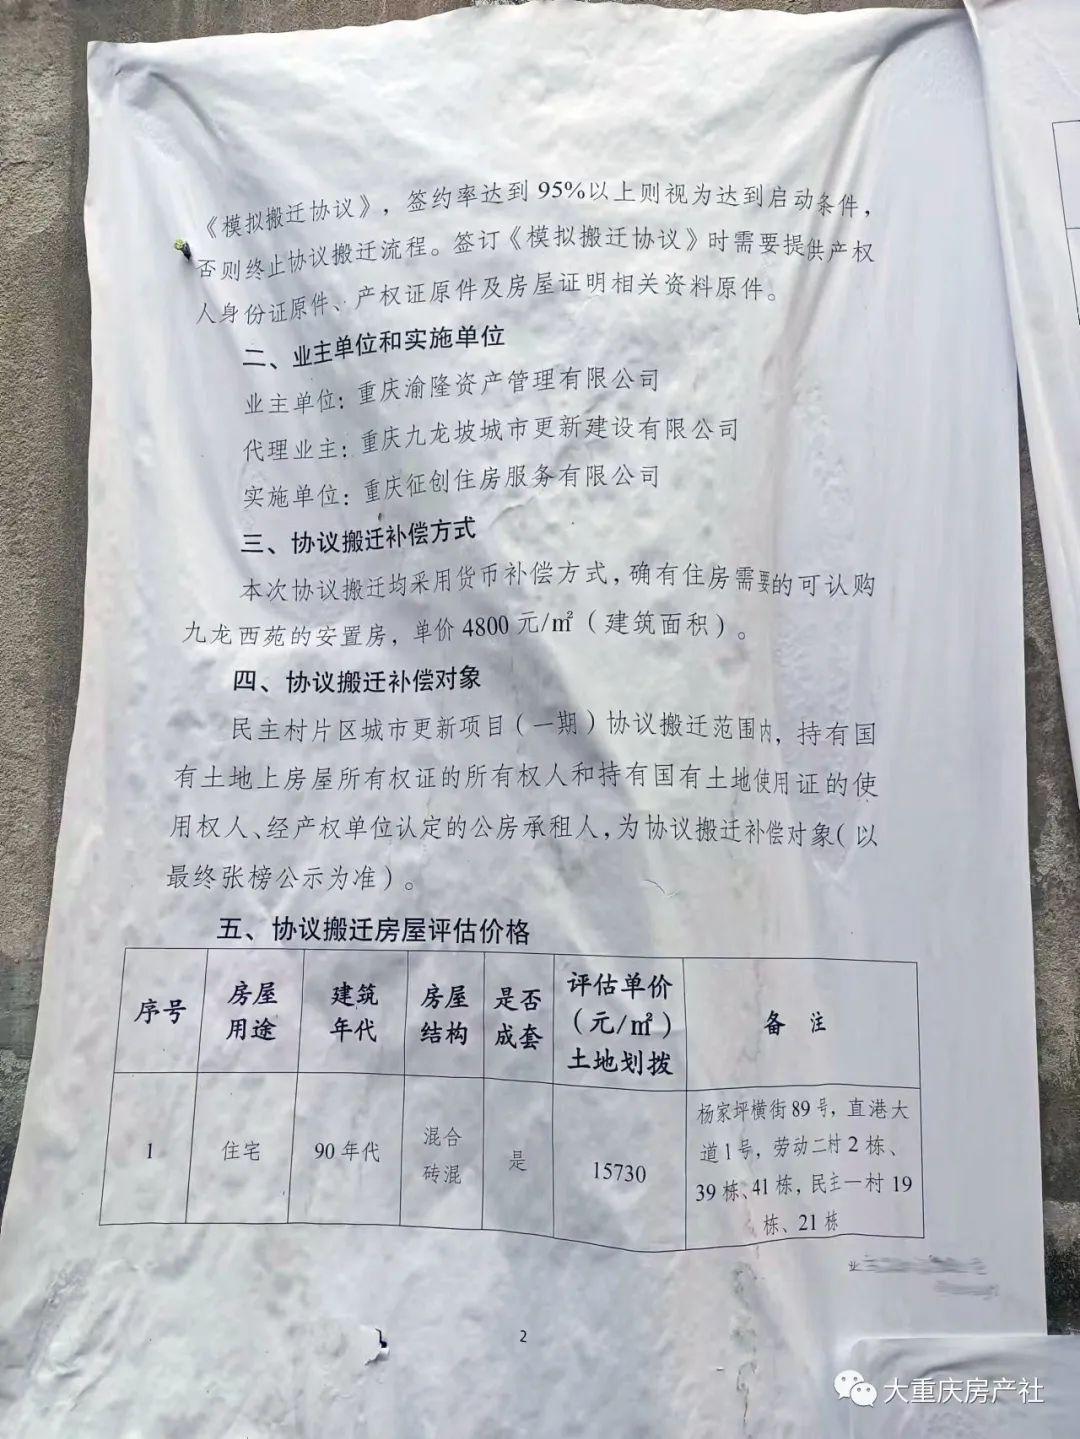 《模拟搬迁协议》，签约率达到95%以上则视为达到启动条件，
否则终止协议搬迁流程。签订《模拟搬迁协议》时需要提供产权
人身份证原件、产权证原件及房屋证明相关资料原件。
二、业主单位和实施单位
业主单位：重庆渝隆资产管理有限公司
代理业主：重庆九龙坡城市更新建设有限公司
实施单位：重庆征创住房服务有限公司
三、协议搬迁补偿方式
本次协议搬迁均采用货币补偿方式，确有住房需要的可认购
九龙西苑的安置房，单价4800元/㎡（建筑面积）。
四、协议搬迁补偿对象
民主村片区城市更新项目（一期）协议搬迁范围内，持有国
有土地上房屋所有权证的所有权人和持有国有土地使用证的使
用权人、经产权单位认定的公房承租人，为协议搬迁补偿对象（以
最终张榜公示为准）。
五、协议搬迁房屋评估价格
序号
房屋
用途
建筑
年代
房屋
结构
是否
成套
评估单价
（元/㎡）
土地划拨
备 注
1
住宅
90年代
混合
砖混
是
15730
杨家坪横街89号，直港大
道1号，劳动二村2栋、
39栋、41栋，民主一村19
栋、21栋
业
2
大重庆房产社